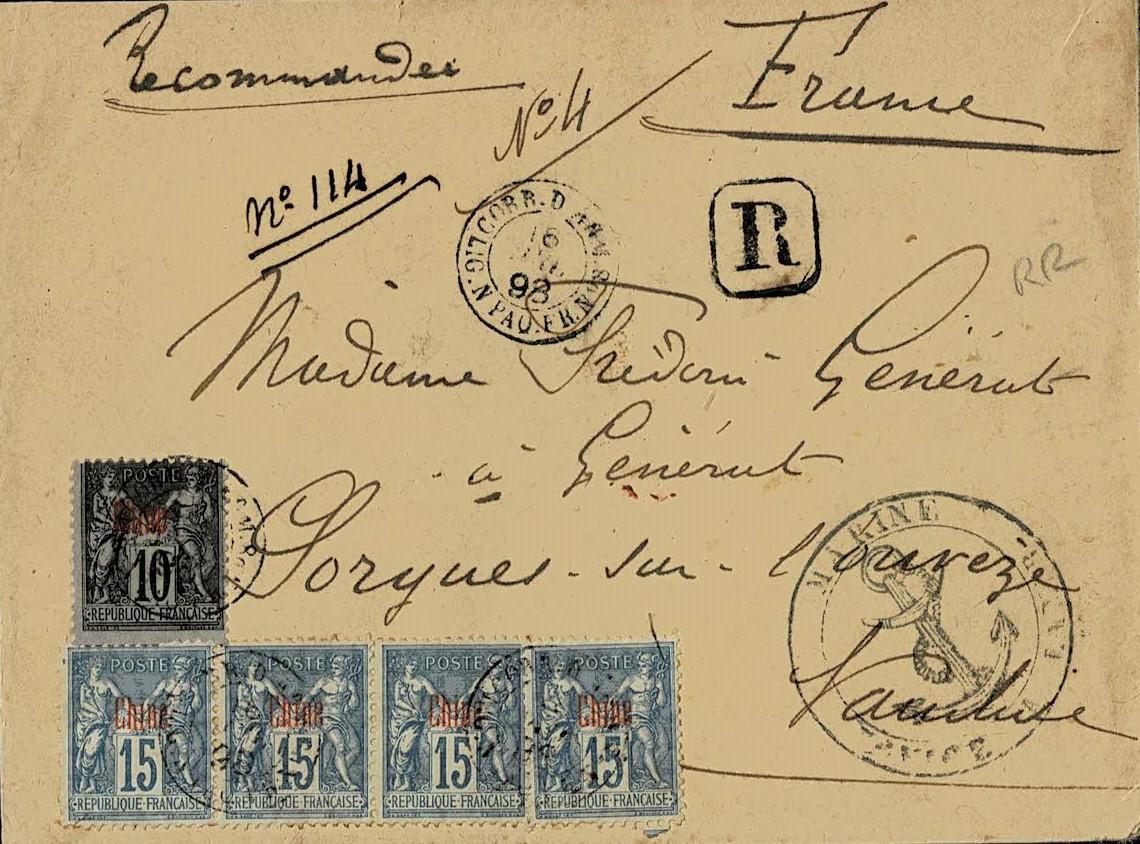 Recommandée
France
No. 4
No. 114
LIG. N PAQ. FR. No 8
CORR. D'ARM.
16
98
R
RR
Madame Frédéric Générat
à Générat
Sorgues-sur-l'ouvèze
Vaucluse
MARINE
POSTE
Chine
10
REPUBLIQUE FRANÇAISE
POSTE POSTE POSTE POSTE
Chine Chine Chine Chine
15 15 15 15
REPUBLIQUE FRANÇAISE REPUBLIQUE FRANÇAISE REPUBLIQUE FRANÇAISE REPUBLIQUE FRANÇAISE